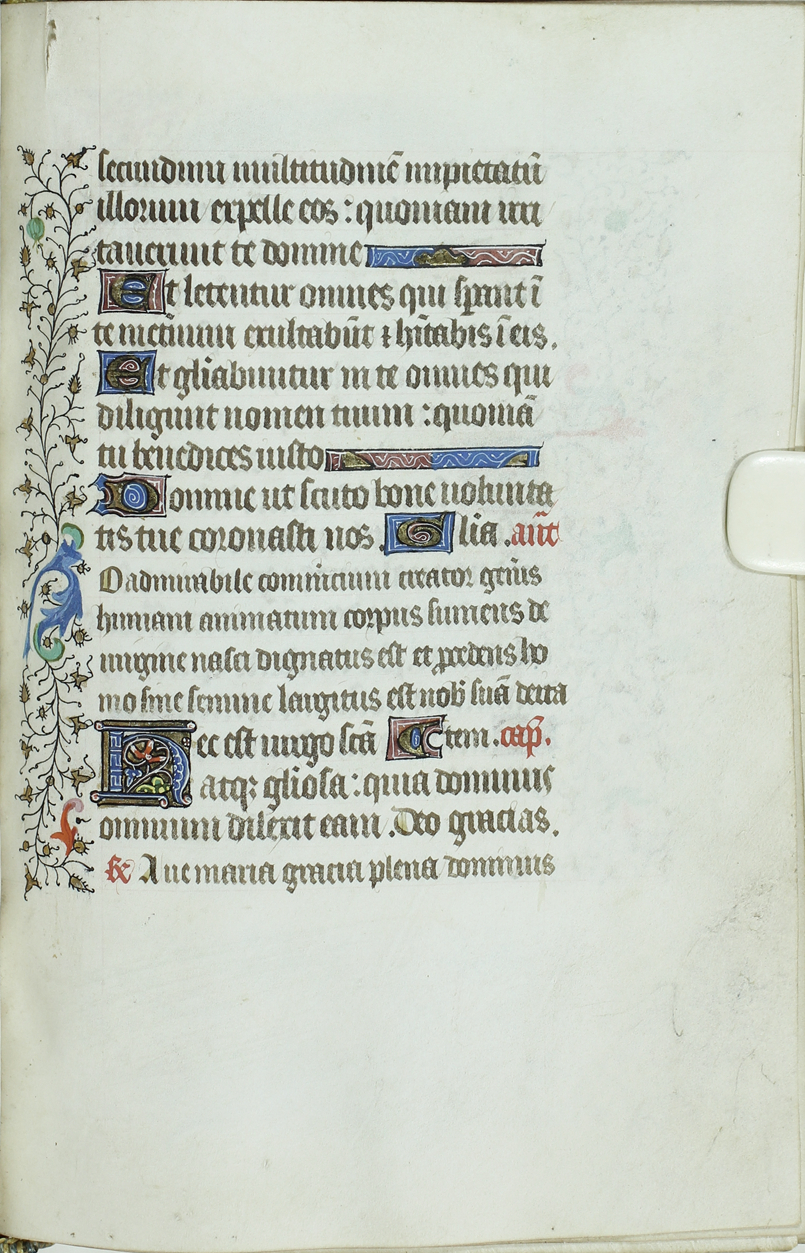 secundum multitudinē impietatū
illorum expelle eos : quoniam irri
tauerunt te domine
Et letentur omnes qui sperant ī
te in eternum exultabūt ⁊ hītabis ī eis.
Et glīabuntur in te omnes qui
diligunt nomen tuum : quoniā
tu benedices iusto
Domine ut scuto bone uolunta
tis tue coronasti nos . Glīa . anť
O admirabile commercium creator gen̄is
humani animatum corpus sumens de
uirgine nasci dignatus est et procedens ho
mo sine semine largitus est nob̄ suā deita
Hec est uirgo scā Etem . cap̄.
atqꝫ glīosa : quia dominus
omnium dilexit eam . Deo gracias .
℟ Aue maria gracia plena dominus